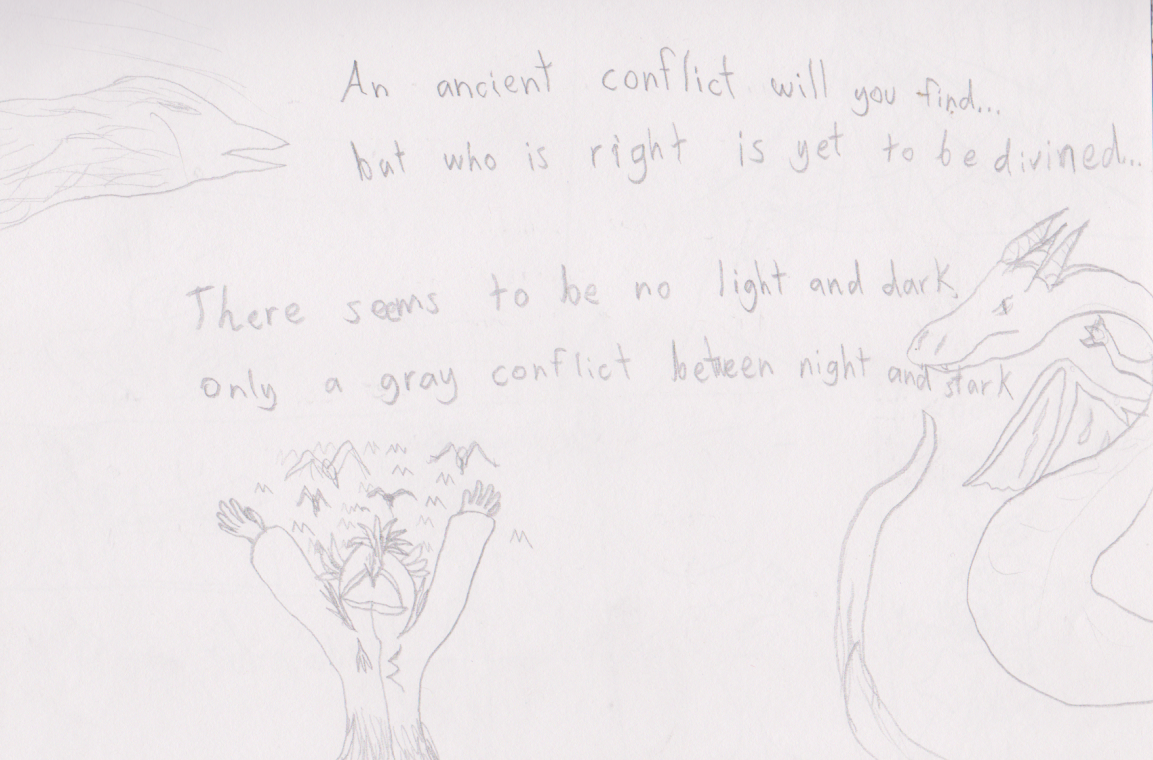 An ancient conflict will you find...
but who is right is yet to be divined...
There seems to be no light and dark,
only a gray conflict between night and stark